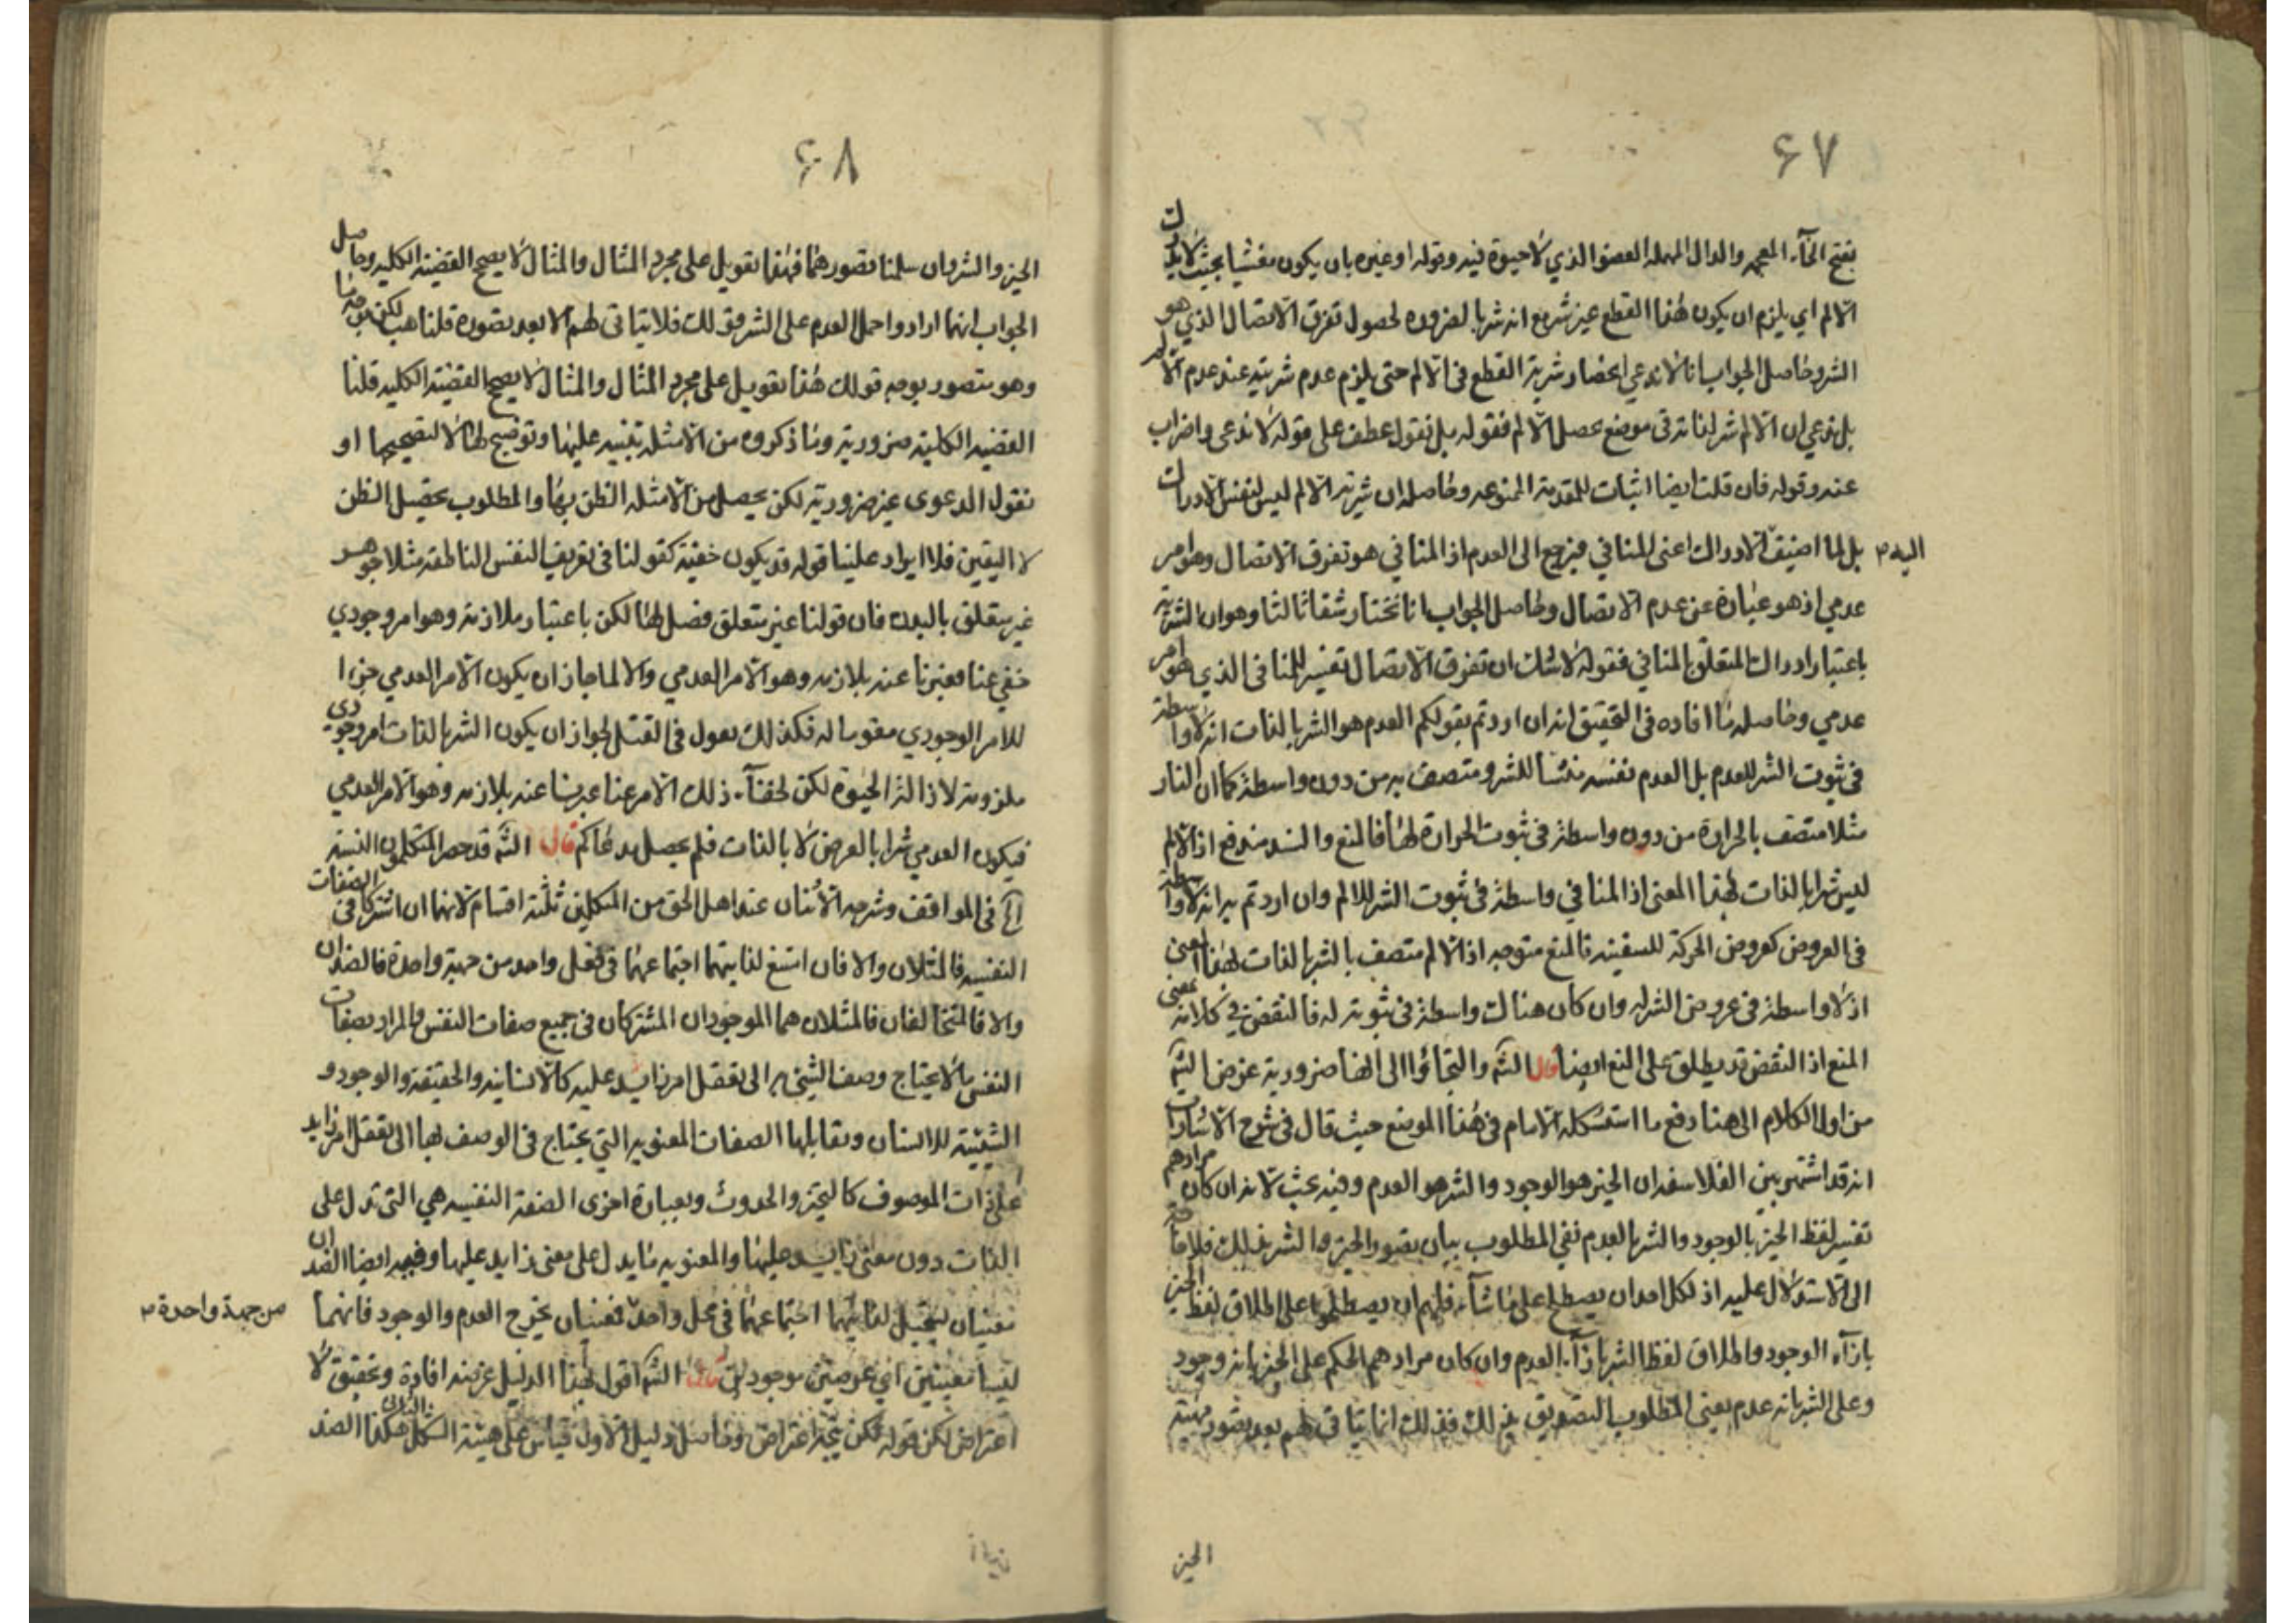 ٦٧
بفتح الخآء المعجمه والدال المهمله العضو الذي لا حيوة فيه وقوله او غيره بان يكون مغشيا بحيث لا يدرك
الالم اي يلزم ان يكون هذا القطع غير شر مع انه شر بالضروره لحصول تفرق الاتصال الذي هو
الشر وحاصل الجواب انا لا ندعي انحصار شرية القطع في الالم حتى يلزم عدم شريته عند عدم الالم
بل ندعي ان الالم شر لذاته في موضع يحصل الالم فقوله بل نقول عطف على قوله لا ندعى واضراب
عنه وقوله فان قلت ايضا اثبات للمقدمة الممنوعه وحاصله ان شرية الالم ليس لنفس الادراك
بل لما اضيف الادراك اعنى المنافي فيرجع الى العدم اذ المنافي هو تفرق الاتصال وهو امر
اليه
عدمي اذ هو عبارة عن عدم الاتصال وحاصل الجواب انا نختار شقا ثالثا وهو ان الشرية
باعتبار ادراك المتعلق بالمنافي فقوله لا شك ان تفرق الاتصال تفسير للمنافى الذي هو امر
عدمي وحاصله ما افاده في التحقيق انه ان اردتم بقولكم العدم هو الشر بالذات انه لا واسطة
في ثبوت الشر للعدم بل العدم نفسه منشأ للشر ومتصف به من دون واسطة كما ان النار
مثلا متصف بالحرارة من دون واسطة في ثبوت الحرارة لها فالمنع والسند مندفع اذ الالم
ليس شرا بالذات بهذا المعنى اذ المنافي واسطة في ثبوت الشر للالم وان اردتم به انه لا واسطة
في العروض كعروض الحركة للسفينه فالمنع متوجه اذ الالم متصف بالشر بالذات بهذا المعنى
اذ لا واسطة في عروض الشر له وان كان هنالك واسطة في ثبوته له فالنقض في كلامه بمعنى
المنع اذ النقض قد يطلق على المنع ايضا قال الشم والتجاؤا الى انها ضرورية غرض الشم
من اول الكلام الى هنا دفع ما استشكله الامام في هذا الموضع حيث قال في شرح الاشارات
انه قد اشتهر بين الفلاسفه ان الخير هو الوجود والشر هو العدم وفيه بحث لانه ان كان مرادهم
تفسير لفظ الخير بالوجود والشر بالعدم نفي المطلوب بيان تصور الخير والشر بذلك فلا حاجة
الى الاستدلال عليه اذ لكل احد ان يصطلح على ما شآء فلهم ان يصطلحوا على اطلاق لفظ الخير
بازآء الوجود واطلاق لفظ الشر بازآء العدم وان كان مرادهم الحكم على الخير بانه وجود
وعلى الشر بانه عدم يعنى المطلوب التصديق بذلك فذلك انما يتاتى لهم بعد تصور مهية
الخير
٦٨
الخير والشر وان سلمنا تصورهما فهذا تعويل على مجرد المثال والمثال لا يصحح القضيه الكليه وحاصل
الجواب انهما ارادوا حمل العدم على الشر قولك فلا يتاتى لهم الا بعد تصوره قلنا هب لكن
وهو متصور بوجه قولك هذا تعويل على مجرد المثال والمثال لا يصحح القضيه الكليه قلنا
القضيه الكلية ضرورية وما ذكروه من الامثله تنبيه عليها وتوضيح لها لا لتصحيحها او
نقول الدعوى غير ضرورية لكن يحصل من الامثله الظن بها والمطلوب تحصيل الظن
لا اليقين فلا ايراد علينا قوله قد يكون خفية كقولنا في تعريف النفس الناطقه مثلا جوهر
غير متعلق بالبدن فان قولنا غير متعلق فصل لها لكن باعتبار ملازمه وهو امر وجودي
خفي عنا فعبرنا عنه بلازمه وهو الامر العدمي والا لما جاز ان يكون الامر العدمي جزءا
للامر الوجودي مقوما له فكذلك نقول في القتل لجواز ان يكون الشر بالذات امر وجودى
ملزومه لازالة الحيوة لكن لخفآء ذلك الامر عنا عبرنا عنه بلازمه وهو الامر العدمي
فيكون العدمي شرا بالعرض لا بالذات فلم يحصل مدعاكم قال الشم قد حصر المتكلمون النسبة
الخ في المواقف وشرحه الاثنان عند اهل الحق من المتكلمين ثلثة اقسام لانهما ان اشتركا في الصفات
النفسيه فالمثلان والا فان امتنع لذاتيهما اجتماعهما في محل واحد من جهة واحدة فالضدان
والا فالمتخالفان فالمثلان هما الموجودان المشتركان في جميع صفات النفس والمراد بصفات
النفس ما لا يحتاج وصف الشئ به الى تعقل امر زايد عليه كالانسانيه والحقيقه والوجود و
الشيئية للانسان ويقابلها الصفات المعنويه التي يحتاج في الوصف بها الى تعقل امر زايد
على ذات الموصوف كالتحيز والحدوث وبعبارة اخرى الصفة النفسيه هي التى تدل على
الذات دون معنى زايد عليها والمعنويه ما يدل على معنى زايد عليها وفيه ايضا الضدان
معنيان يستحيل لذاتيهما اجتماعهما في محل واحد فمعنيان يخرج العدم والوجود فانهما
من جهة واحدة
ليسا معنيين اي عرضين موجودين قال الشم اقول لهذا الدليل غرضه افادة وتحقيق لا
اعتراض لكن قوله يمكن اعتراض وحاصل دليل الاول قياس على هيئة الشكل الثانى هكذا الضد